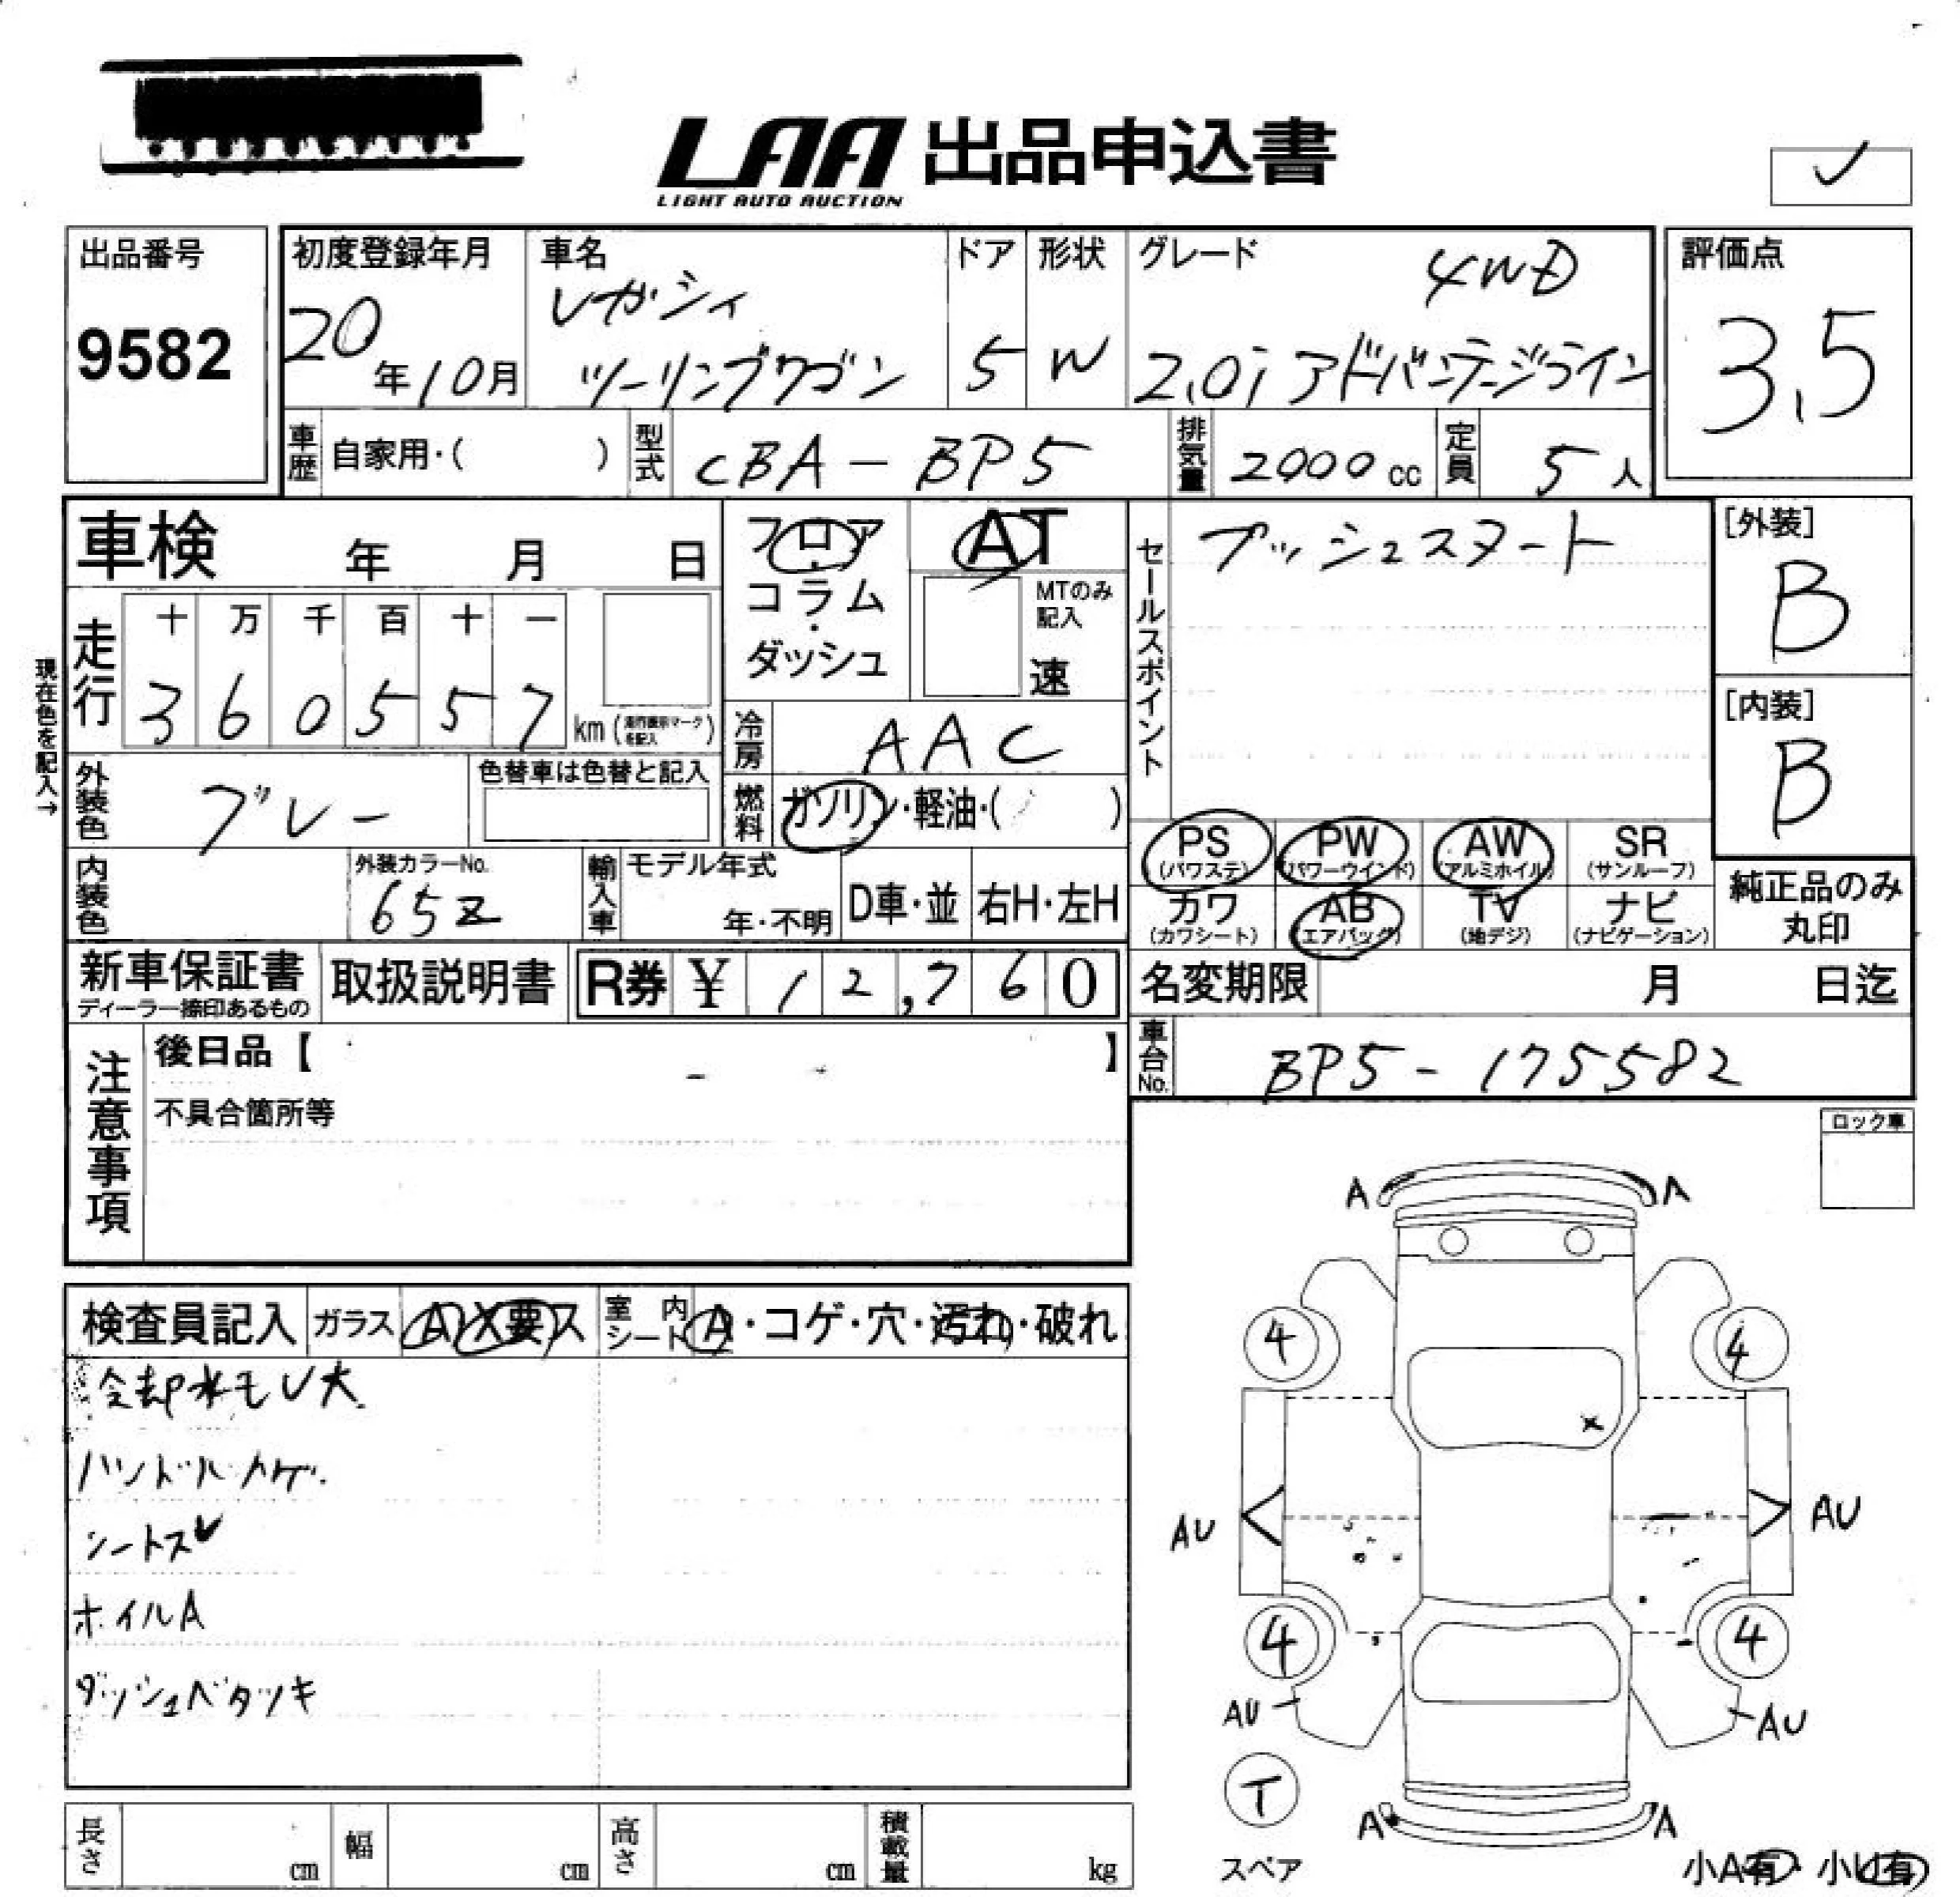 LAA 出品申込書
LIGHT AUTO AUCTION
✓
出品番号
9582
初度登録年月
20年10月
車名
レガシィ
ツーリングワゴン
ドア
5
形状
W
グレード
4WD
2.0i アドバンテージライン
評価点
3.5
車歴 自家用・( )
型式 CBA-BP5
排気量 2000cc
定員 5人
車検 年 月 日
フロア
コラム
・
ダッシュ
AT
MTのみ
記入
速
セールスポイント
プッシュスタート
[外装]
B
[内装]
B
現在色を記入→
走行
十 万 千 百 十 一
3 6 0 5 5 7 km (走行表示マークを記入)
冷房 AAC
外装色 グレー
色替車は色替と記入
燃料 ガソリン・軽油・( )
内装色
外装カラーNo.
65Z
輸入車
モデル年式
年・不明
D車・並
右H・左H
PS (パワステ)
PW (パワーウインド)
AW (アルミホイル)
SR (サンルーフ)
カワ (カワシート)
AB (エアバッグ)
TV (地デジ)
ナビ (ナビゲーション)
純正品のみ
丸印
新車保証書
ディーラー捺印あるもの
取扱説明書
R券 ¥ 12,760
名変期限 月 日迄
車台No. BP5-175582
注意事項
後日品【 】
不具合箇所等
ロック車
検査員記入
ガラス A X 要ス
室内シート A・コゲ・穴・汚れ・破れ
冷却水モレ大
ハンドルハゲ
シートスレ
ホイルA
ダッシュベタツキ
A A
4 4
x
AU AU
4 4
AU AU
T
スペア
A A
小A有・小U有
長さ cm
幅 cm
高さ cm
積載量 kg